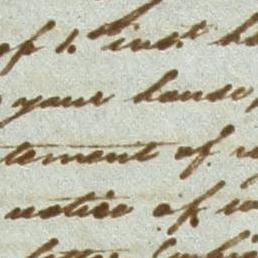 of 1.st inst. h
your hands,
tement of
notice of
letter